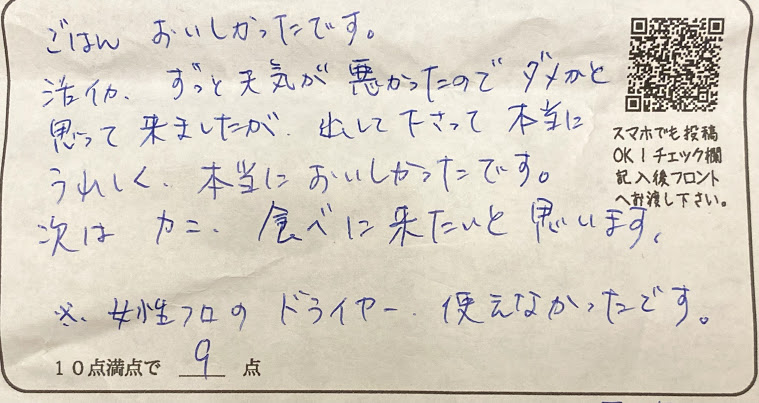 ごはん おいしかったです。
活イカ、ずっと天気が悪かったのでダメかと
思って来ましたが、出して下さって本当に
うれしく、本当においしかったです。
次は カニ、食べに来たいと思います、
※、女性フロの ドライヤー、使えなかったです。
10点満点で 9 点
スマホでも投稿
OK！チェック欄
記入後フロント
へお渡し下さい。